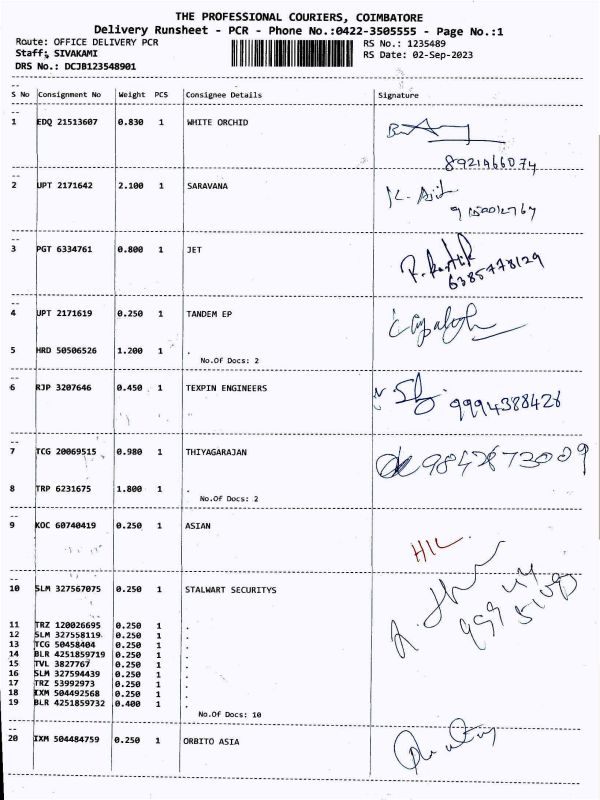 THE PROFESSIONAL COURIERS, COIMBATORE
Delivery Runsheet - PCR - Phone No.:0422-3505555 - Page No.:1
Route: OFFICE DELIVERY PCR RS No.: 1235489
Staff: SIVAKAMI RS Date: 02-Sep-2023
DRS No.: DCJB123548901
S No Consignment No Weight PCS Consignee Details Signature
1 EDQ 21513607 0.830 1 WHITE ORCHID
8921466074
2 UPT 2171642 2.100 1 SARAVANA
K. Ajit
3 PGT 6334761 0.800 1 JET
R. Kartik
6385778129
4 UPT 2171619 0.250 1 TANDEM EP
5 HRD 50506526 1.200 1 .
No.Of Docs: 2
6 RJP 3207646 0.450 1 TEXPIN ENGINEERS
9994388428
7 TCG 20069515 0.980 1 THIYAGARAJAN
9842873009
8 TRP 6231675 1.800 1 .
No.Of Docs: 2
9 KOC 60740419 0.250 1 ASIAN
H/L
10 SLM 327567075 0.250 1 STALWART SECURITYS
11 TRZ 120026695 0.250 1 .
12 SLM 327558119 0.250 1 .
13 TCG 50458404 0.250 1 .
14 BLR 4251859719 0.250 1 .
15 TVL 3827767 0.250 1 .
16 SLM 327594439 0.250 1 .
17 TRZ 53992973 0.250 1 .
18 IXM 504492568 0.250 1 .
19 BLR 4251859732 0.400 1 .
No.Of Docs: 10
20 IXM 504484759 0.250 1 ORBITO ASIA